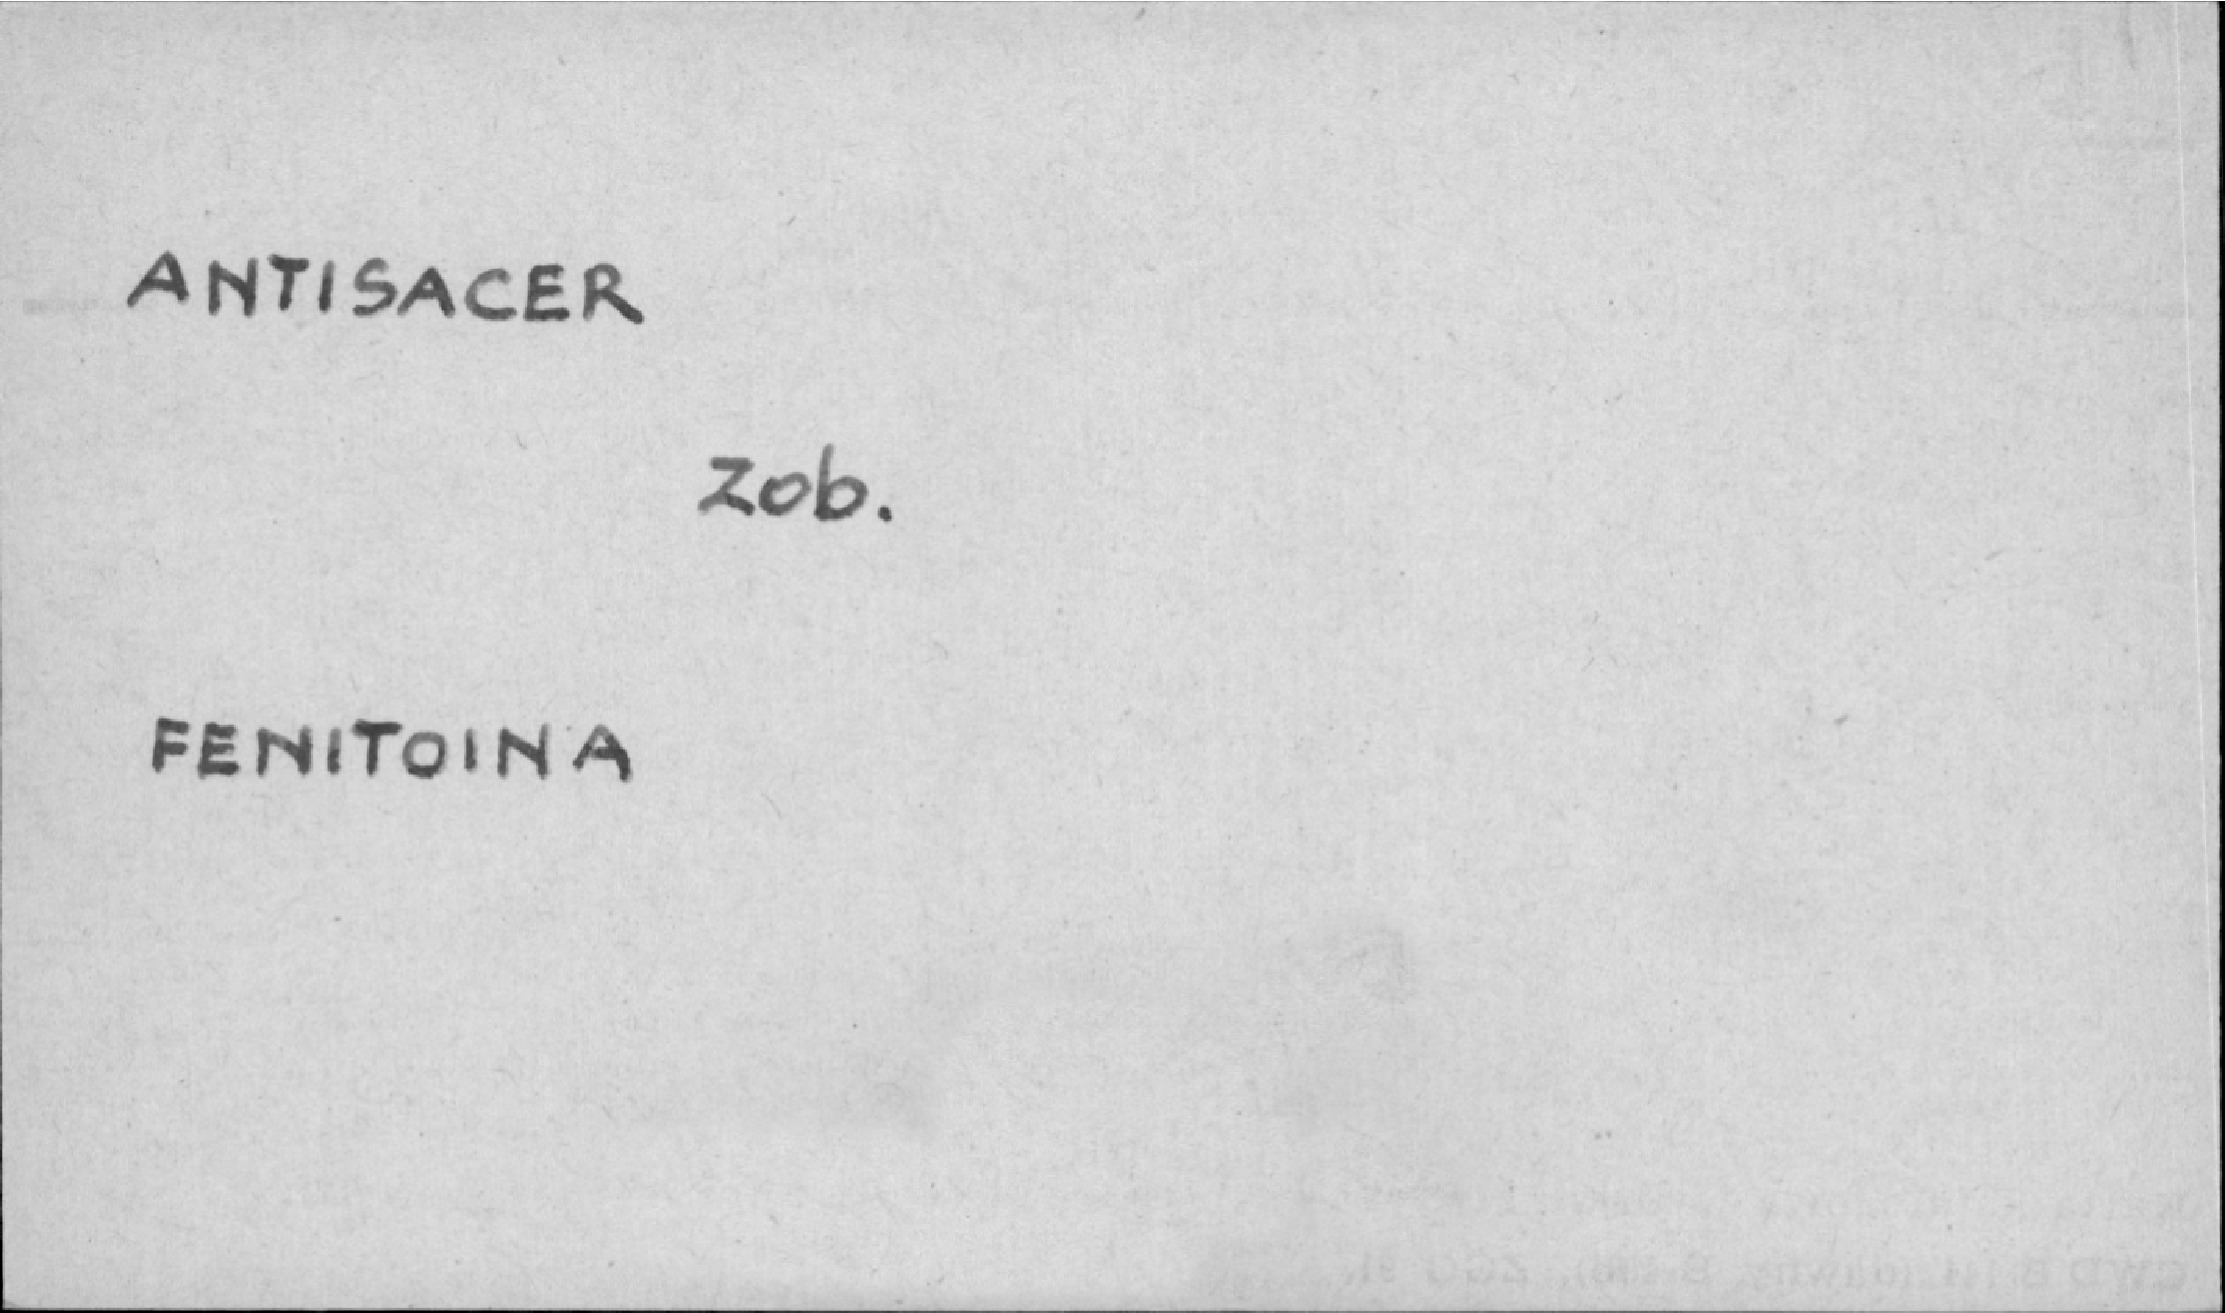 ANTISACER
Zob.
FENITOINA